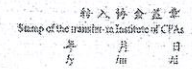 转入协会盖章
Stamp of the transfer-in Institute of CPAs
年 月 日